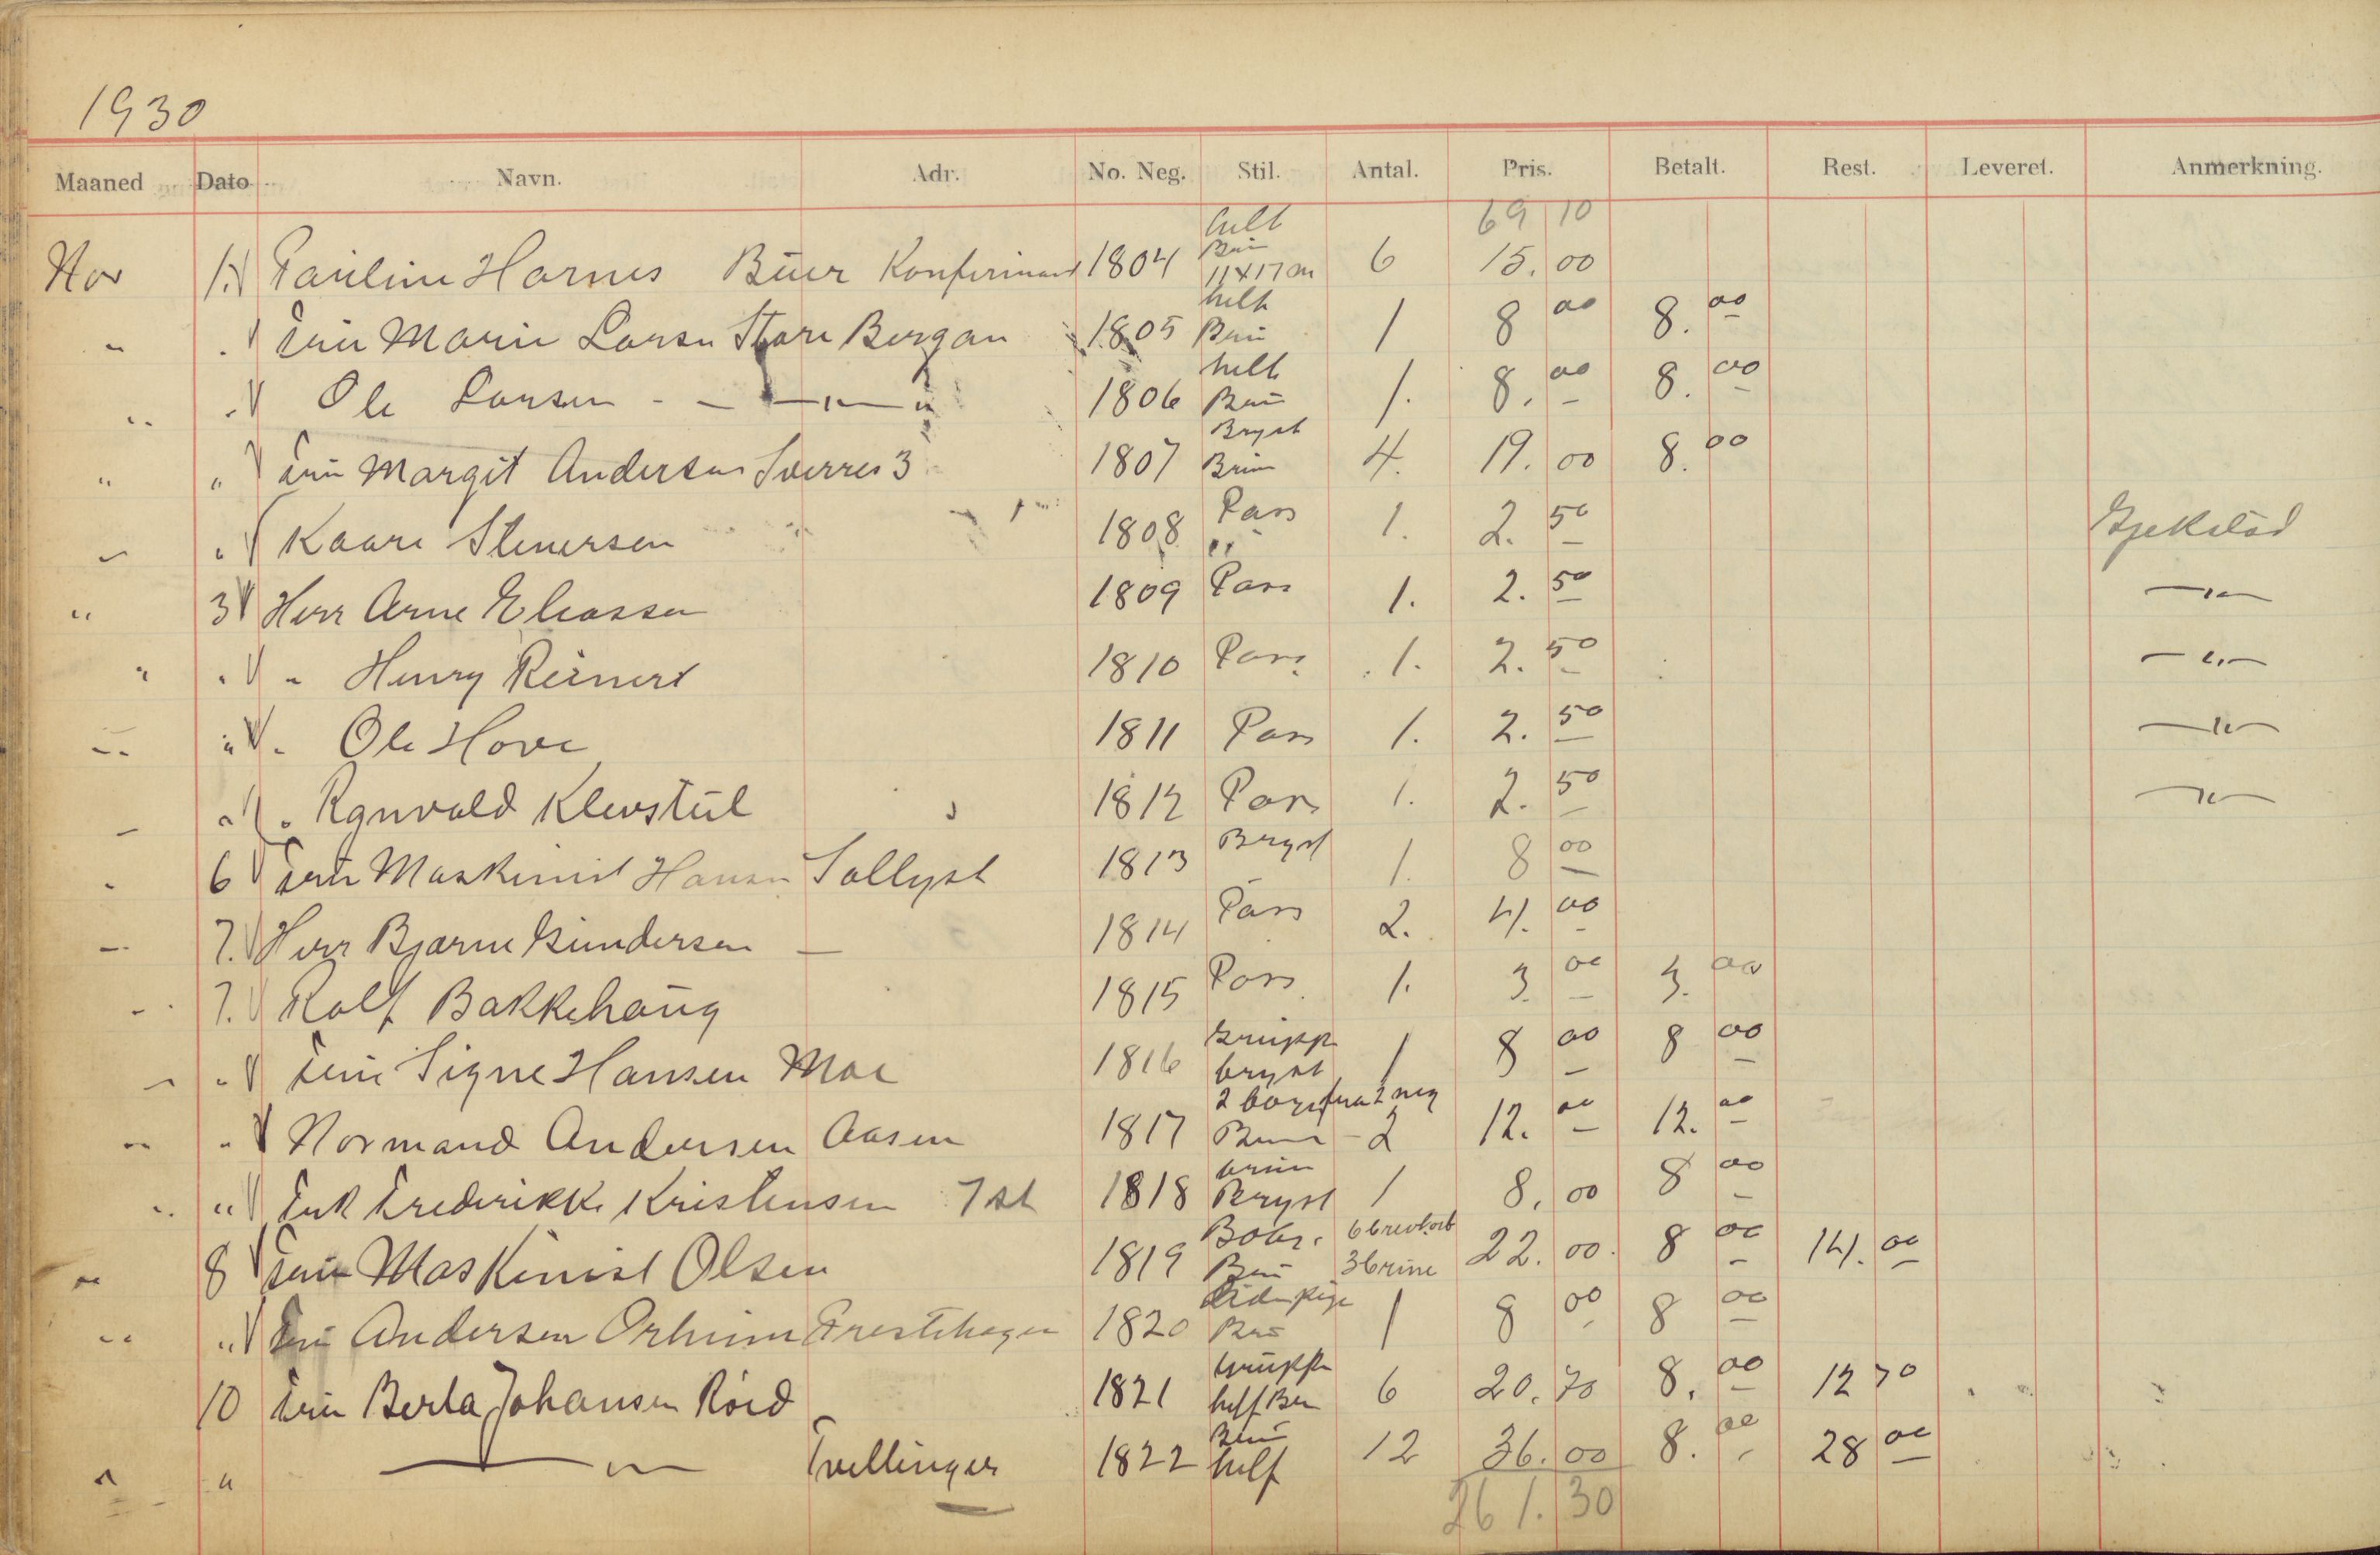 1930
Maaned Dato Navn. Adr. No. Neg. Stil. Antal. Pris. Betalt. Rest. Leveret. Anmerkning.
69 10
Nov 1. Pauline Harnes Buer Konfirmand 1804 helt Brun 11X17 cm 6 15.00
" . Marie Larsen Thore Bergan 1805 helt Brun 1 8 00 8.00
" " Ole Larsen - — " — 1806 helt Brun 1. 8.00 8.00
" " Margit Andersen Sverres 3 1807 Bryst Brun 4. 19.00 8.00
" " Kaare Stenersen 1808 Pass 1. 2.50
" 3 Herr Arne Eliassen 1809 Pass 1. 2.50 — " —
" " " Henry Reinert 1810 Pass 1. 2.50 — " —
" " " Ole Hove 1811 Pass 1. 2.50 — " —
" " " Rgnvald Klevstül 1812 Pass 1. 2.50 — " —
" 6 Maskinist Hansen Sollyst 1813 Bryst 1. 8 00
" 7. Herr Bjarne Gundersen — 1814 Pass 2. 4.00
" 7. Rolf Bakkehaug 1815 Pass 1. 3.00 3.00
" " Signe Hansen Moe 1816 Gruppe bryst 1 8 00 8 00
" " Normand Andersen Aasen 1817 2 fra 2 neg Brun - 2 12.00 12.00
" " Enk Frederikke Kristensen 7 st 1818 brun Bryst 1 8.00 8 00
" 8 Maskinist Olsen 1819 Brun 6 brevkort 3 brune 22.00 8 00 14.00
" " Andersen Prestehagen 1820 1 8 00 8 00
10 Berta Johansen Röed 1821 Gruppe 6 20.70 8.00 12 70
" " — " — Tvellinger 1822 Brun helf 12 36.00 8.00 28 00
261.30